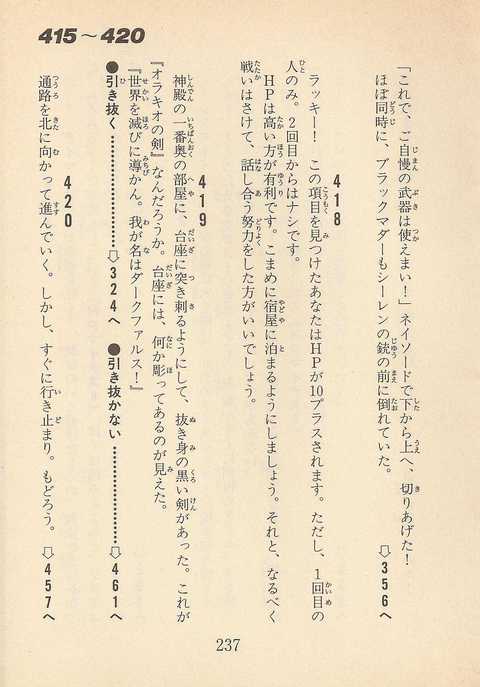 415～420
「これで、ご自慢の武器は使えまい！」ネイソードで下から上へ、切りあげた！
ほぼ同時に、ブラックマダーもシーレンの銃の前に倒れていた。
⇨356へ
418
ラッキー！　この項目を見つけたあなたはHPが10プラスされます。ただし、1回目の
人のみ。2回目からはナシです。
HPは高い方が有利です。こまめに宿屋に泊まるようにしましょう。それと、なるべく
戦いはさけて、話し合う努力をした方がいいでしょう。
419
神殿の一番奥の部屋に、台座に突き刺るようにして、抜き身の黒い剣があった。これが
『オラキオの剣』なんだろうか。台座には、何か彫ってあるのが見えた。
『世界を滅びに導かん。我が名はダークファルス！』
●引き抜く…………⇨324へ　●引き抜かない…………⇨461へ
420
通路を北に向かって進んでいく。しかし、すぐに行き止まり。もどろう。
⇨457へ
237